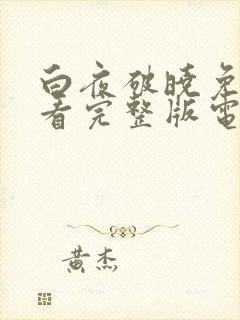 白夜破晓免
看完整版电
黄杰